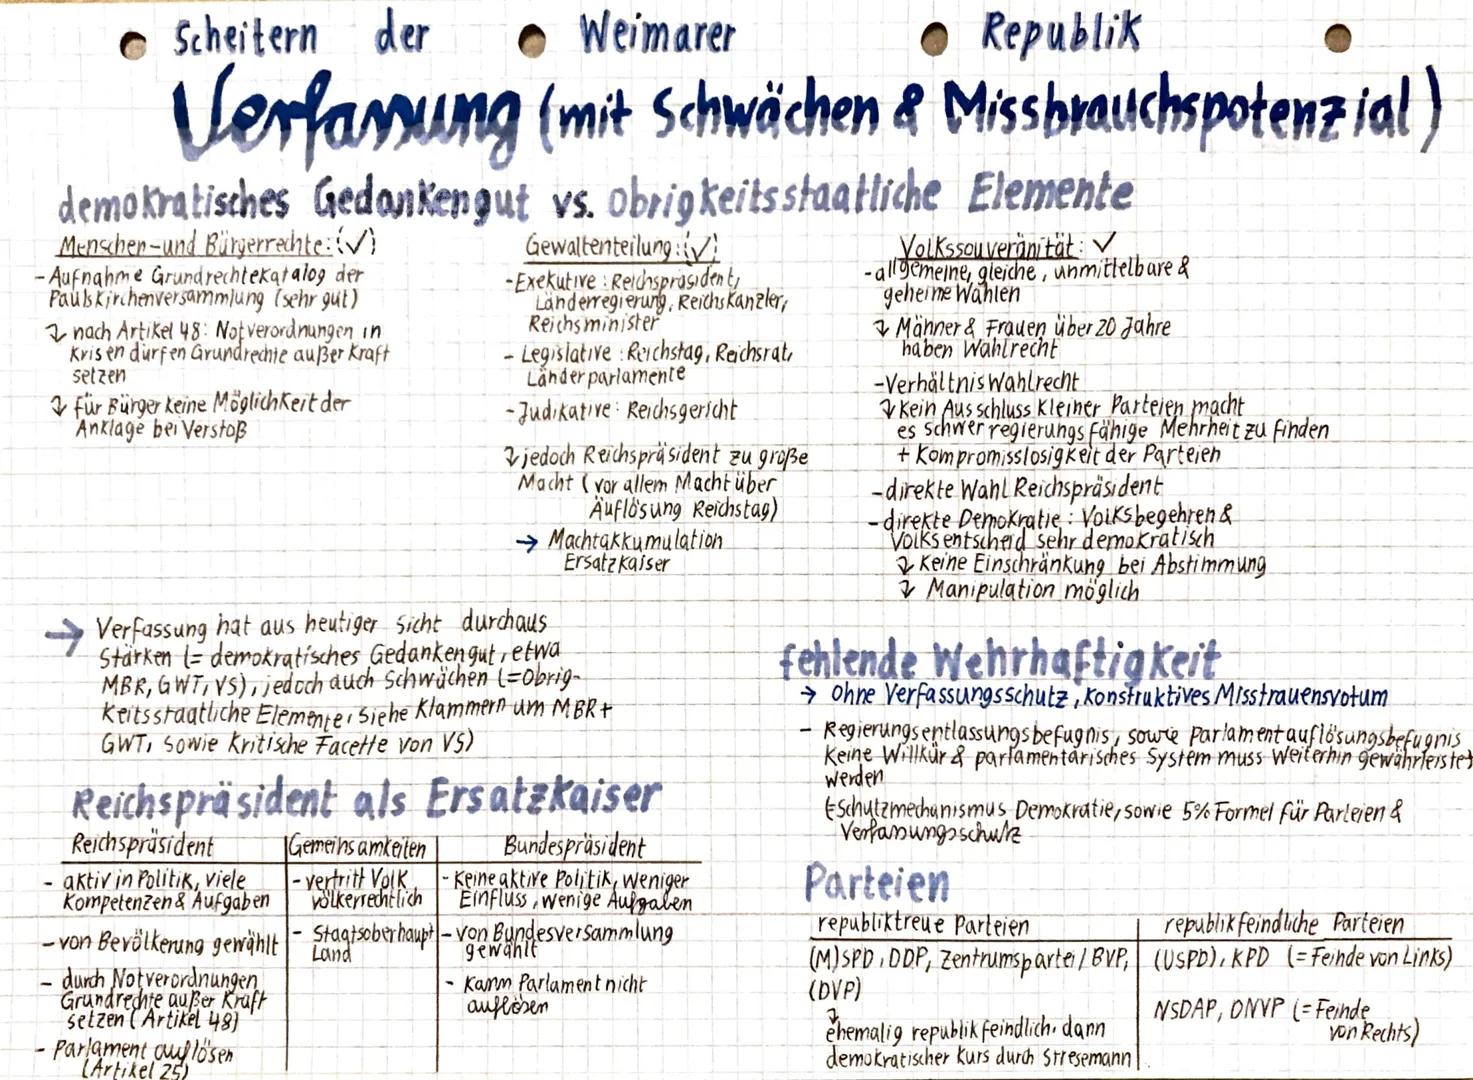 Scheitern der Weimarer Republik
Verfassung (mit Schwächen & Missbrauchspotenzial)
demokratisches Gedankengut vs. obrigkeitsstaatliche Elemente
Menschen- und Bürgerrechte: (✓)
- Aufnahme Grundrechtekatalog der
Paulskirchenversammlung (sehr gut)
↴ nach Artikel 48: Notverordnungen in
Krisen dürfen Grundrechte außer Kraft
setzen
↴ für Bürger keine Möglichkeit der
Anklage bei Verstoß
Gewaltenteilung: (✓)
- Exekutive: Reichspräsident,
Länderregierung, Reichskanzler,
Reichsminister
- Legislative: Reichstag, Reichsrat,
Länderparlamente
- Judikative: Reichsgericht
↴ jedoch Reichspräsident zu große
Macht (vor allem Macht über
Auflösung Reichstag)
→ Machtakkumulation
Ersatzkaiser
Volkssouveränität: ✓
- allgemeine, gleiche, unmittelbare &
geheime Wahlen
↴ Männer & Frauen über 20 Jahre
haben Wahlrecht
- Verhältniswahlrecht
↴ kein Ausschluss kleiner Parteien macht
es schwer regierungsfähige Mehrheit zu finden
+ Kompromisslosigkeit der Parteien
- direkte Wahl Reichspräsident
- direkte Demokratie: Volksbegehren &
Volksentscheid sehr demokratisch
↴ keine Einschränkung bei Abstimmung
↴ Manipulation möglich
→ Verfassung hat aus heutiger Sicht durchaus
Stärken (= demokratisches Gedankengut, etwa
MBR, GWT, VS), jedoch auch Schwächen (= Obrig-
keitsstaatliche Elemente, siehe Klammern um MBR +
GWT, sowie kritische Facette von VS)
fehlende Wehrhaftigkeit
→ ohne Verfassungsschutz, konstruktives Misstrauensvotum
- Regierungsentlassungsbefugnis, sowie Parlamentauflösungsbefugnis
keine Willkür & parlamentarisches System muss weiterhin gewährleistet
werden
↳ Schutzmechanismus Demokratie, sowie 5% Formel für Parteien &
Verfassungsschutz
Reichspräsident als Ersatzkaiser
Reichspräsident
- aktiv in Politik, viele
Kompetenzen & Aufgaben
- von Bevölkerung gewählt
- durch Notverordnungen
Grundrechte außer Kraft
setzen (Artikel 48)
- Parlament auflösen
(Artikel 25)
Gemeinsamkeiten
- vertritt Volk
völkerrechtlich
- Staatsoberhaupt
Land
Bundespräsident
- Keine aktive Politik, weniger
Einfluss, wenige Aufgaben
- von Bundesversammlung
gewählt
- Kann Parlament nicht
auflösen
Parteien
republiktreue Parteien
(M)SPD, DDP, Zentrumspartei/BVP,
(DVP)
↴
ehemalig republikfeindlich, dann
demokratischer Kurs durch Stresemann
republikfeindliche Parteien
(USPD), KPD (= Feinde von Links)
NSDAP, DNVP (= Feinde
von Rechts)